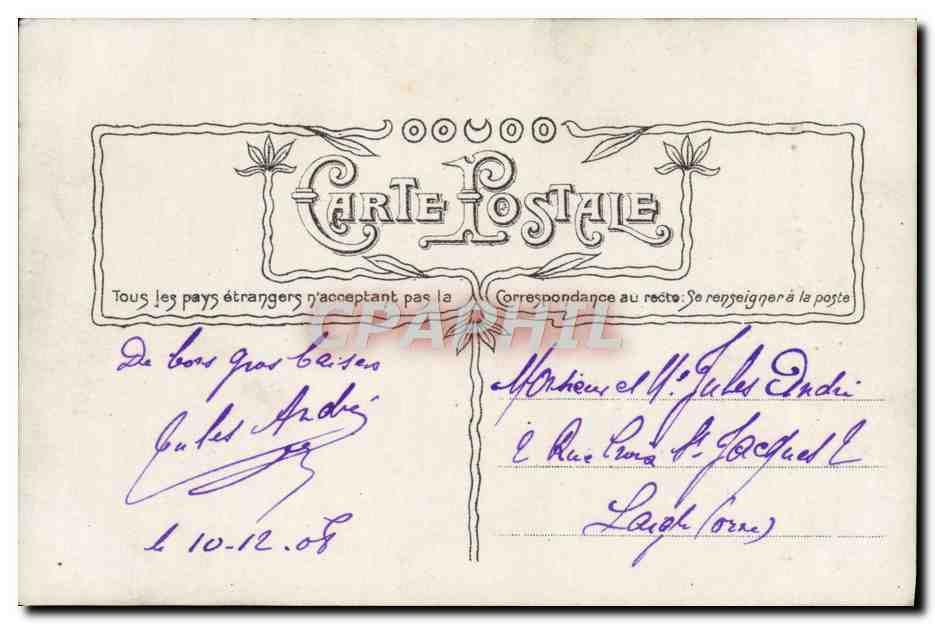 CARTE POSTALE
Tous les pays étrangers n'acceptant pas la Correspondance au recto: Se renseigner à la poste
CPAPHIL
De bons gros baisers
Jules André
le 10-12-08
Monsieur et Me Jules André
2 Rue Croix St Jacques 2
Laigle (orne)